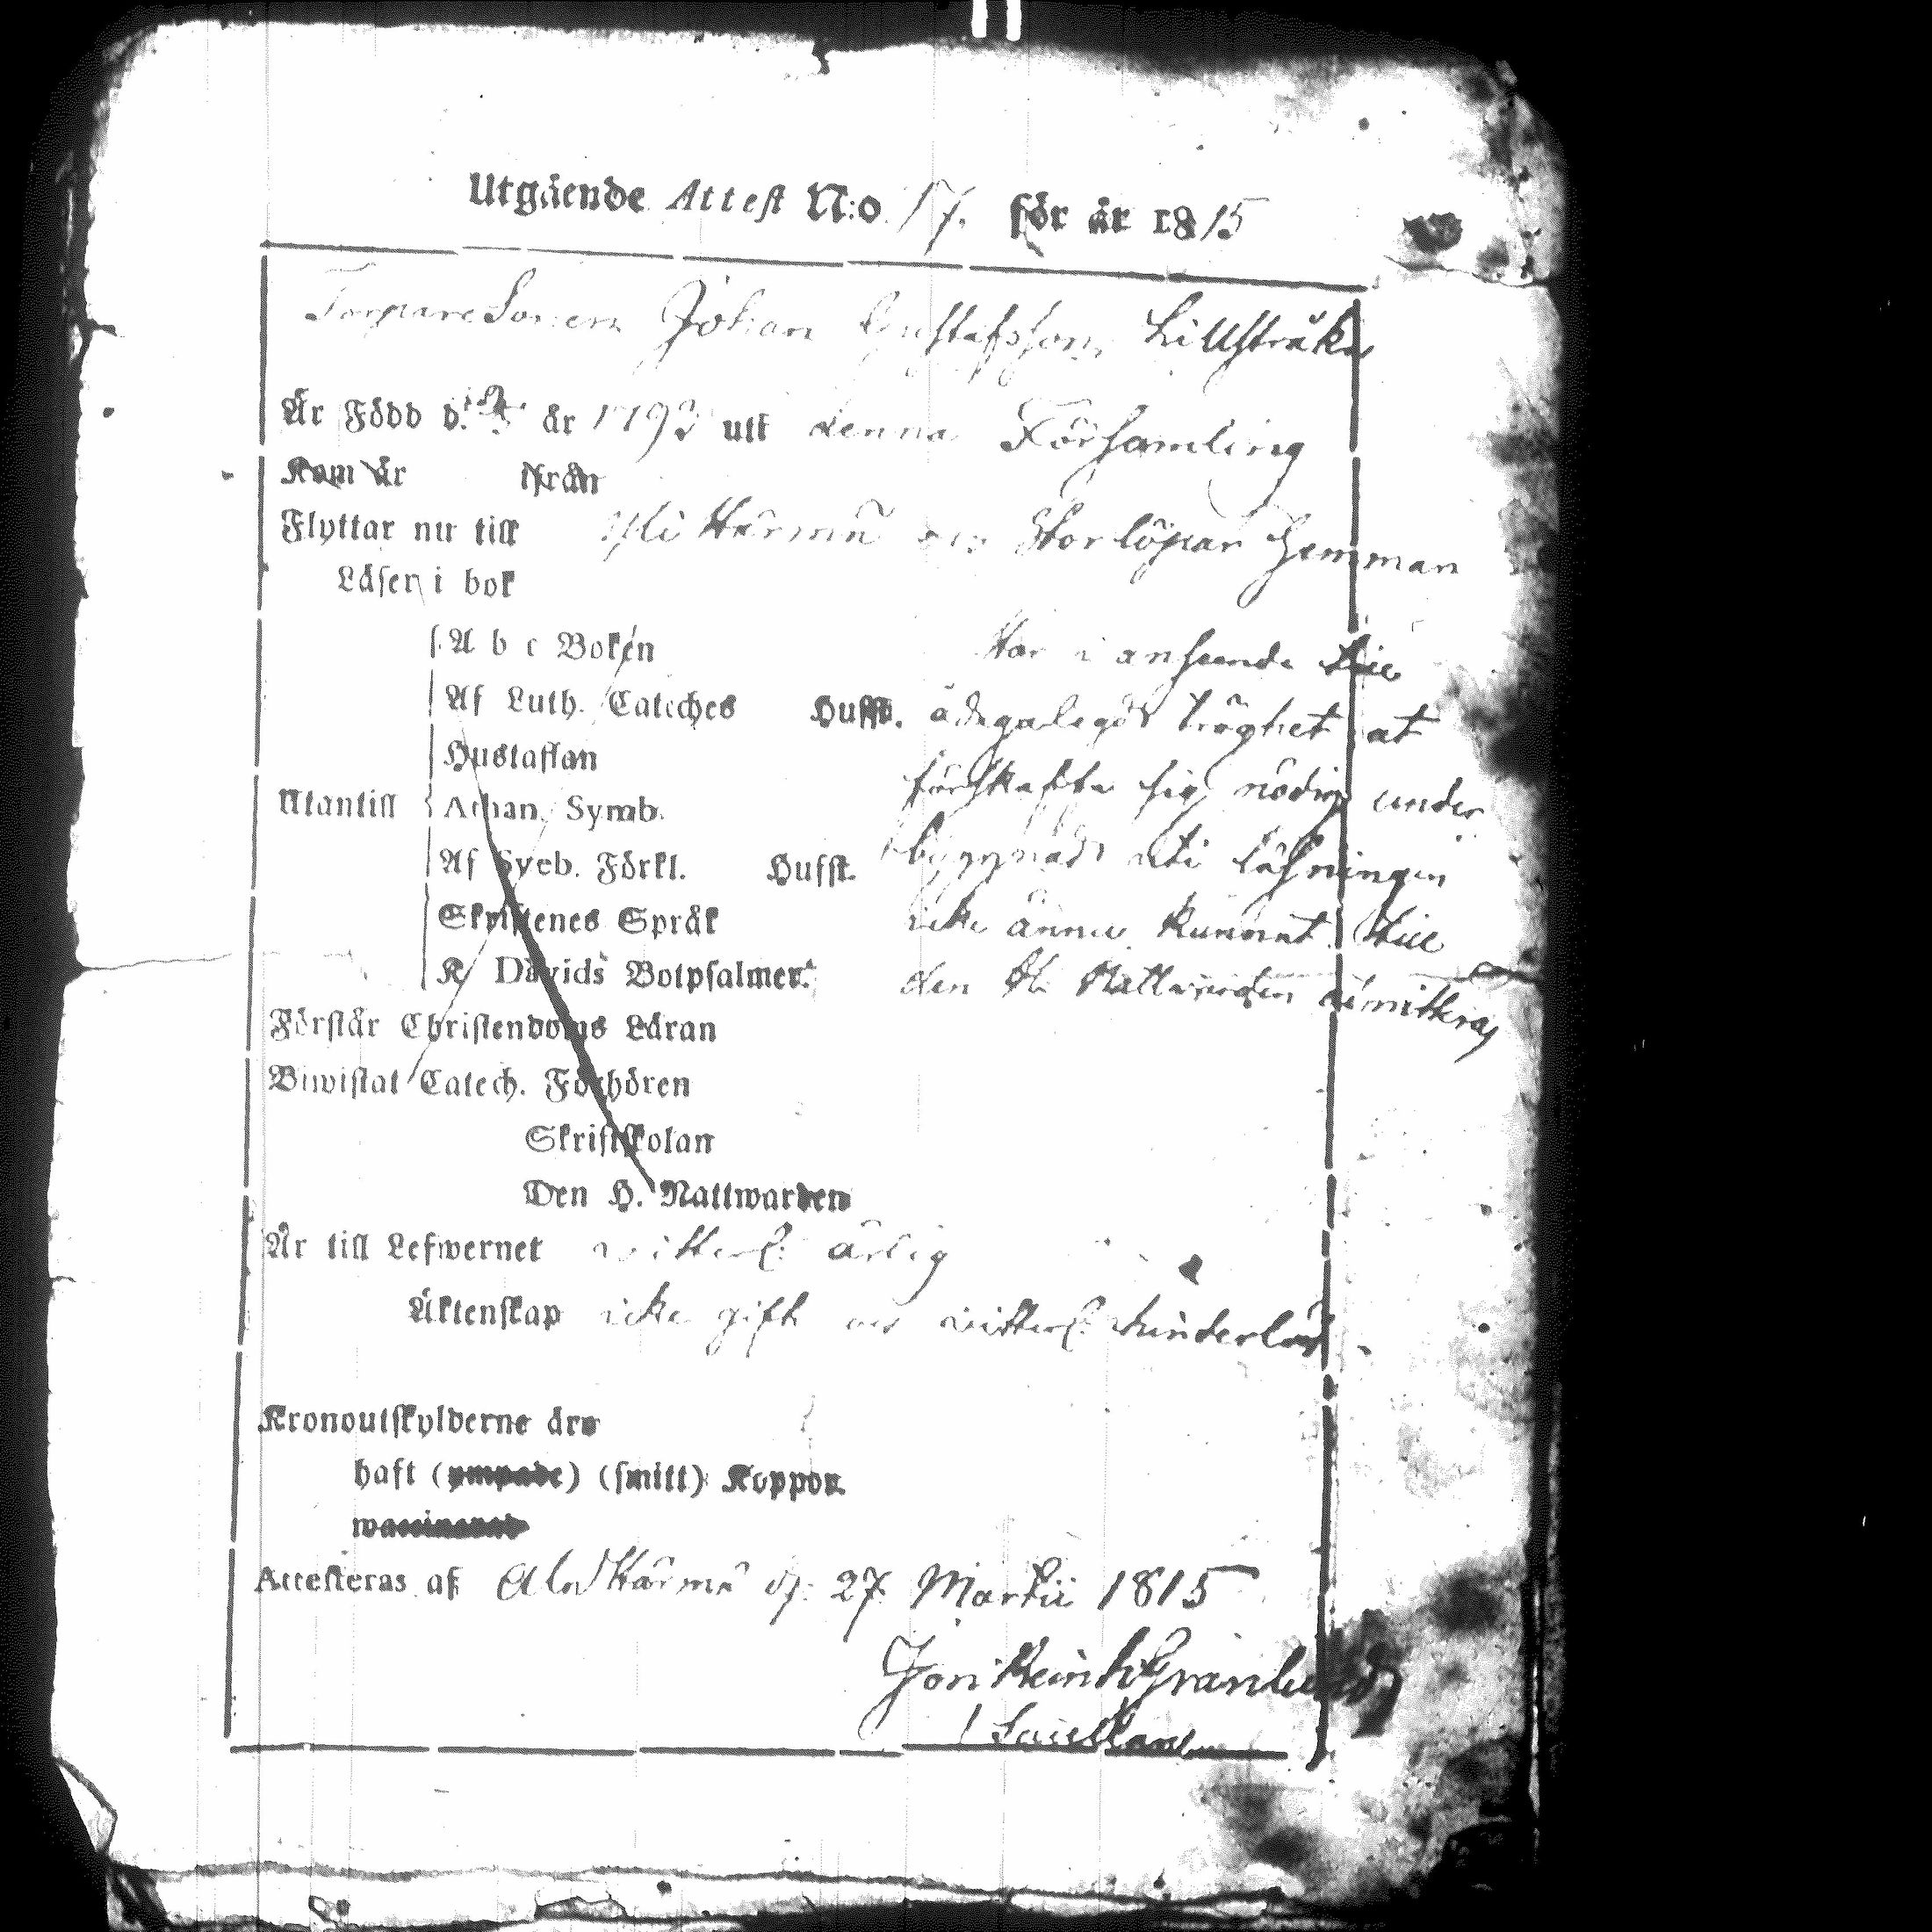 Utgående Attest N:o 17. för år 1815
Torpare Sonen Johan Gustafsson Lillsträk
Är Född d. år 1792 uti denna Församling
Kom år från
Flyttar nu till Ytti Härmä Storlöpar Hemman
Läser i bok
A b c Boken
Har i anseende till
Af Luth. Cateches Hufst. ådagalagd tröghet at
Hustaflan
förskaffa sig nödig under
Utantill Athan. Symb.
byggnad uti läsningen
Af Sveb. Förkl. Hufst.
icke ännu kunnat till
Skriftenes Språk
den H. Nattwarden admitteras
K Davids Botpsalmer.
Förstår Christendoms Läran
Biwistat Catech. Förhören
Skriftskolan
Den H. Nattwarden
Är till Lefwernet witterl. ärlig
Äktenskap icke gift och witterl. hinderlös
Kronoutskylderne äro
haft (ympade) (smitt) Koppor
waccinerad
Attesteras af Ala Härmä d. 27 Martii 1815